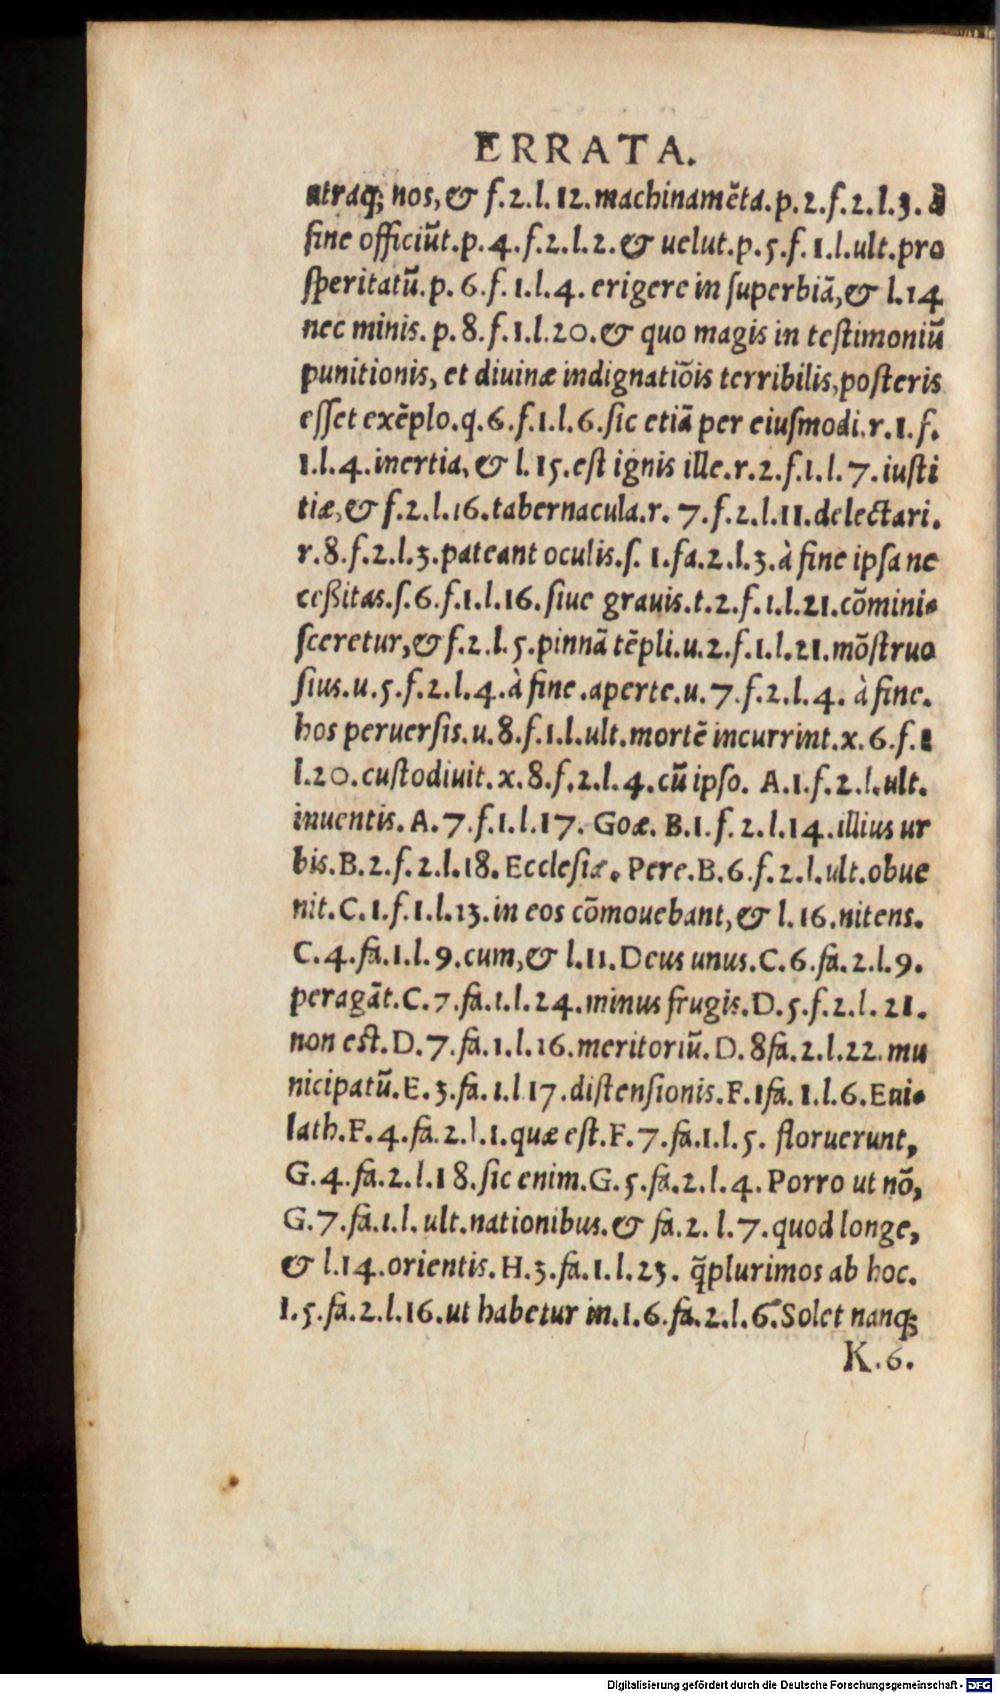 ERRATA.
utraq; nos, & f.2.l.12.machinamẽta.p.2.f.2.l.3.à
fine officiũt.p.4.f.2.l.2.& uelut.p.5.f.1.l.ult.pro
ſperitatũ.p.6.f.1.l.4. erigere in ſuperbiã,& l.14
nec minis.p.8.f.1.l.20.& quo magis in teſtimoniũ
punitionis, et diuinæ indignatiõis terribilis,poſteris
eſſet exẽplo.q.6.f.1.l.6.ſic etiã per eiuſmodi.r.1.f.
1.l.4.inertia, & l.15.eſt ignis ille.r.2.f.1.l.7.iuſti
tiæ,& f.2.l.16.tabernacula.r.7.f.2.l.11.delectari.
r.8.f.2.l.3.pateant oculis.ſ.1.fa.2.l.3.à fine ipſa ne
ceßitas.ſ.6.f.1.l.16.ſiue grauis.t.2.f.1.l.21.cõmini-
ſceretur,& f.2.l.5.pinnã tẽpli.u.2.f.1.l.21.mõſtruo
ſius.u.5.f.2.l.4.à fine.aperte.u.7.f.2.l.4. à fine.
hos peruerſis.u.8.f.1.l.ult.mortẽ incurrint.x.6.f.1
l.20.cuſtodiuit.x.8.f.2.l.4.cũ ipſo. A.1.f.2.l.ult.
inuentis. A.7.f.1.l.17. Goæ. B.1.f.2.l.14.illius ur
bis.B.2.f.2.l.18.Eccleſiæ. Pere.B.6.f.2.l.ult.obue
nit.C.1.f.1.l.23.in eos cõmouebant,& l.16.nitens.
C.4.fa.1.l.9.cum,& l.11.Deus unus.C.6.fa.2.l.9.
peragãt.C.7.fa.1.l.24.minus frugis.D.5.f.2.l.21.
non eſt.D.7.fa.1.l.16.meritoriũ.D.8fa.2.l.22.mu
nicipatũ.E.3.fa.1.l 17.diſtenſionis.F.1fa.1.l.6.Eui-
lath.F.4.fa.2.l.1.quæ eſt.F.7.fa.1.l.5. floruerunt,
G.4.fa.2.l.18.ſic enim.G.5.fa.2.l.4.Porro ut nõ,
G.7.fa.1.l.ult.nationibus.& fa.2.l.7.quod longe,
& l.14.orientis.H.3.fa.1.l.23. q̃plurimos ab hoc.
I.5.fa.2.l.16.ut habetur in.I.6.fa.2.l.6.Solet nanq;
K.6.
Digitalisierung gefördert durch die Deutsche Forschungsgemeinschaft - DFG